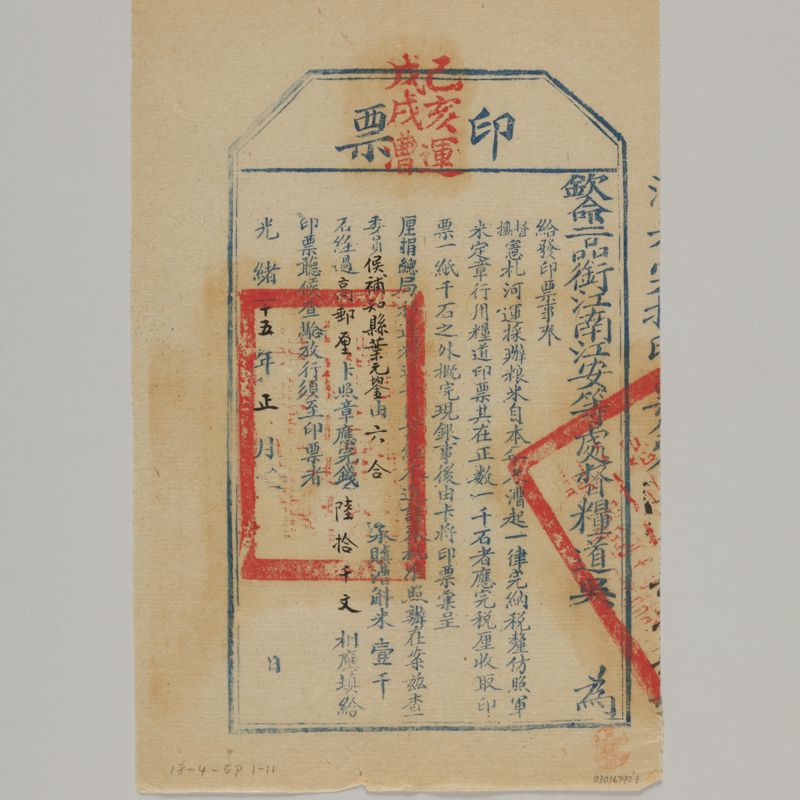 印票
己亥運
戊戌漕
欽命二品銜江南江安等處督糧道吳 為
給發印票事奉
督撫憲札河運採辦粮米自本年冬漕起一律完納税釐仿照軍
米定章行用糧道印票其在正數一千石者應完税厘收取印
票一紙千石之外概完現銀事後由卡將印票彙呈
厘捐總局 照辦在案茲查
委員候補知縣葉元鋆由六合 漕斛米壹千
石經過高郵厘卡照章應完錢陸拾千文 相應填給
印票聽候查驗放行須至印票者
光緒二十五年正月 日
18-4-EP 1-11
030167909